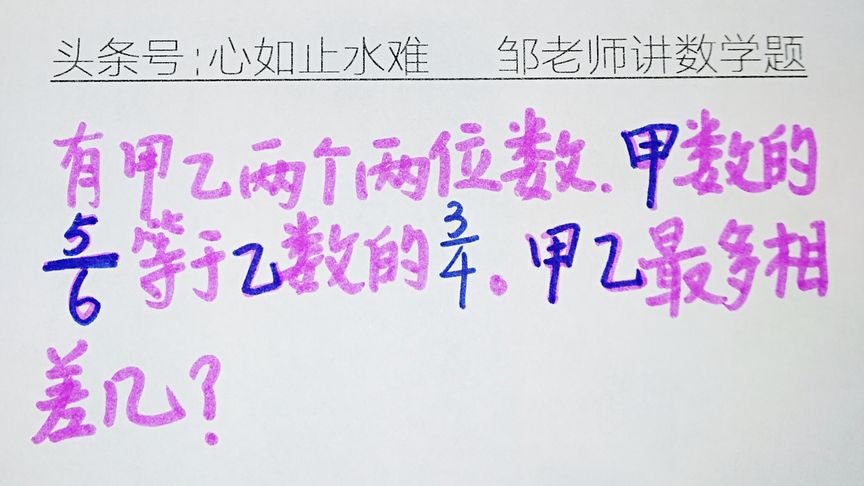 头条号:心如止水难 邹老师讲数学题
有甲乙两个两位数.甲数的
5/6等于乙数的3/4.甲乙最多相
差几?